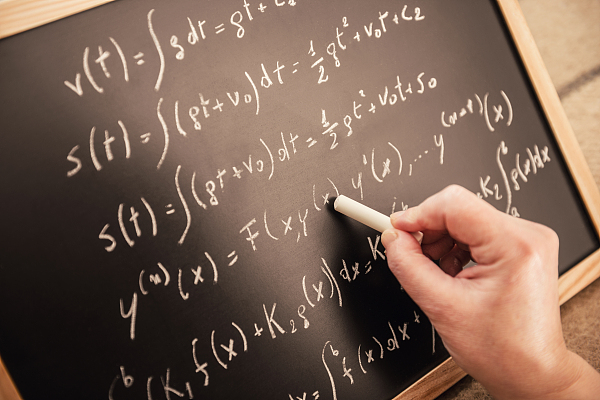 v(t) = ∫ g dt = gt + c₂
s(t) = ∫(gt + v₀)dt = ½gt² + v₀t + c₂
s(t) = ∫(gt + v₀)dt = ½gt² + v₀t + s₀
y⁽ⁿ⁾(x) = F(x, y(x), y'(x), ..., y⁽ⁿ⁻¹⁾(x)
K₁f(x) + K₂g(x))dx = K + K₂∫ᵇg(x)dx
∫ᵇf(x)dx +